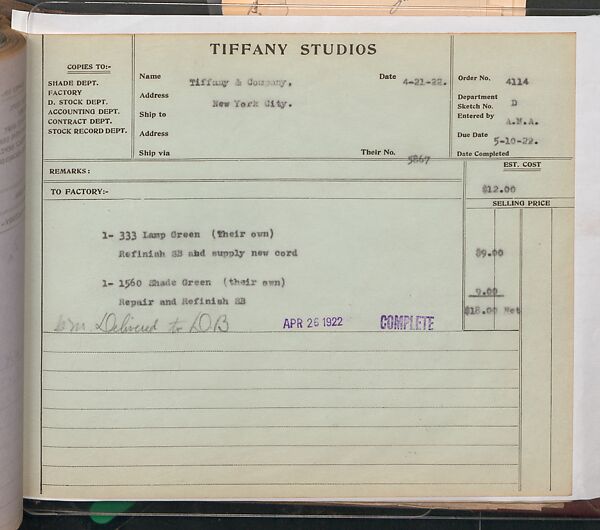 TIFFANY STUDIOS
COPIES TO:-
SHADE DEPT.
FACTORY
D. STOCK DEPT.
ACCOUNTING DEPT.
CONTRACT DEPT.
STOCK RECORD DEPT.
Name Tiffany & Company, Date 4-21-22.
Address New York City.
Ship to
Address
Ship via Their No. 5867
Order No. 4114
Department
Sketch No. D
Entered by A.M.A.
Due Date 5-10-22.
Date Completed
REMARKS:
EST. COST
TO FACTORY:-
$12.00
SELLING PRICE
1- 333 Lamp Green (Their own)
Refinish SB abd supply new cord $9.00
1- 1560 Shade Green (their own)
Repair and Refinish SB 9.00
Delivered to DB APR 26 1922 COMPLETE $18.00 Net